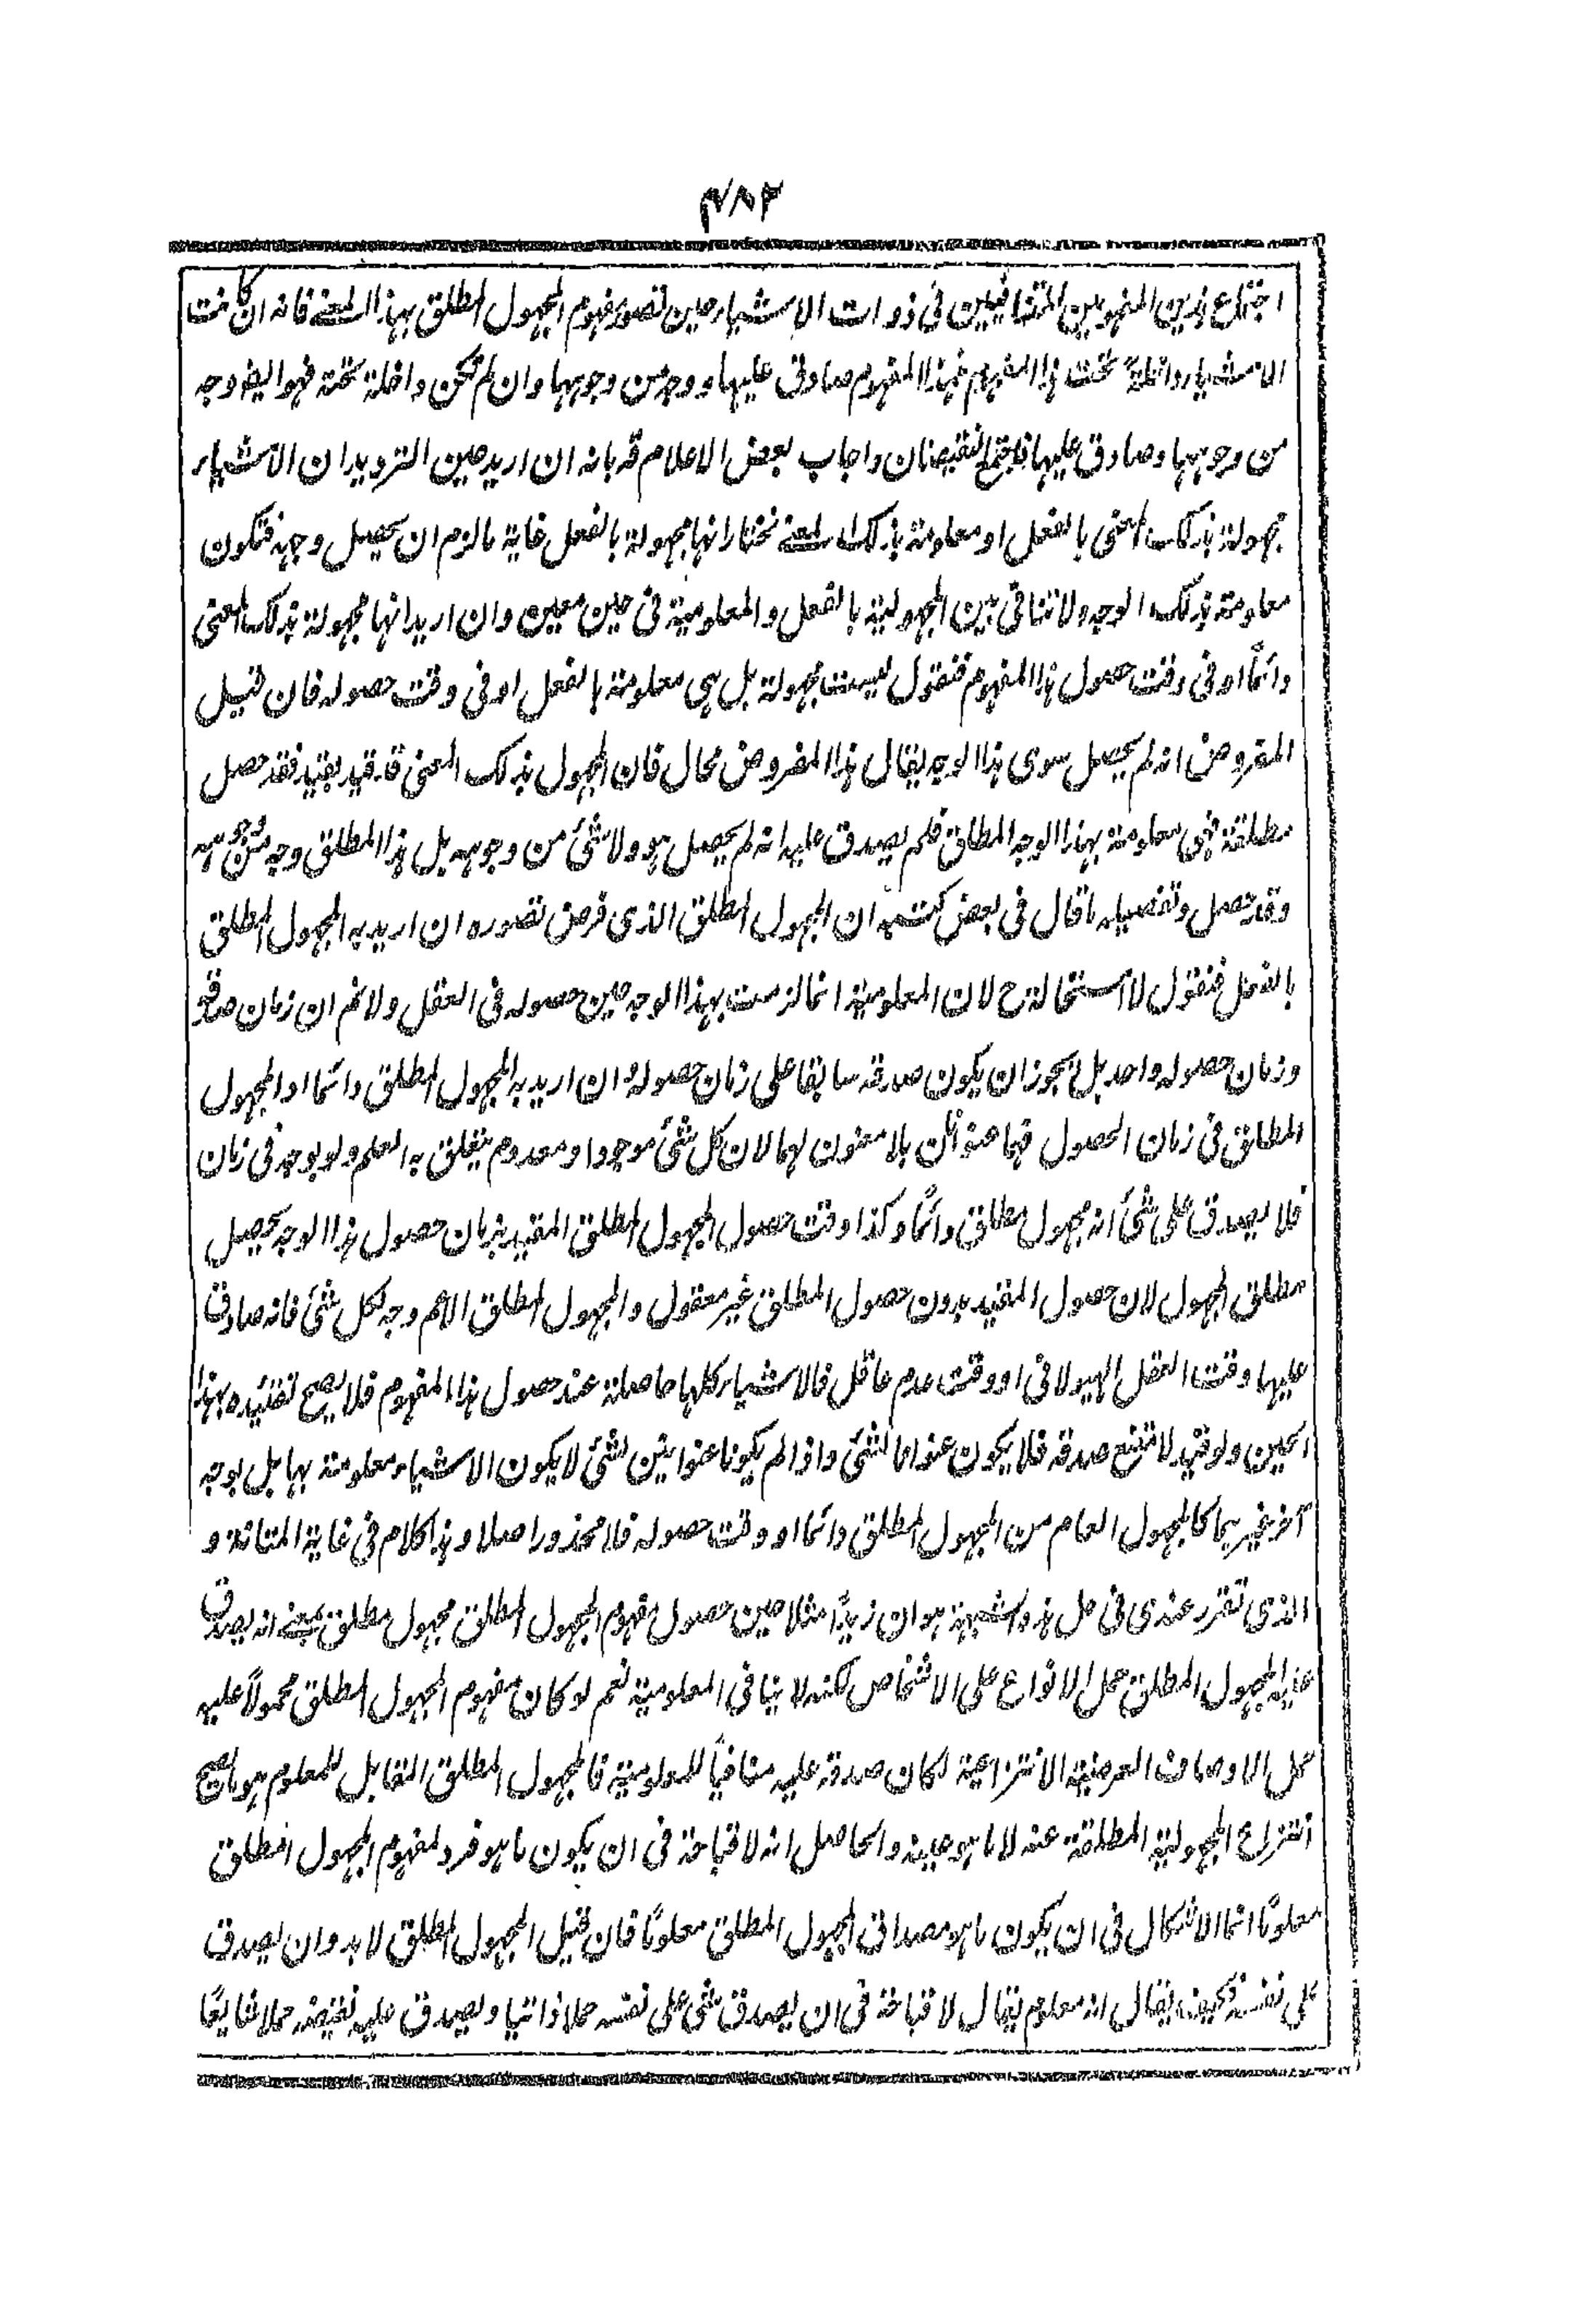 ٤٨٢
اجتماع هذين المفهومين المتنافيين في ذوات الاشياء حين تصور مفهوم المجهول المطلق بهذا المعنے فانه ان كانت
الاشياء داخلة تحت هذا المفهوم فهذا المفهوم صادق عليها ووجه من وجوهها وان لم تكن داخلة تحته فهو ايضا وجه
من وجوهها وصادق عليها فاجتمع النقيضان واجاب بعض الاعلام قد بانه ان اريد حين الترديد ان الاشياء
مجهولة بذلك المعنى بالفعل او معلومة بذلك المعنے نختار انها مجهولة بالفعل غاية ما لزم ان يحصل وجهه فتكون
معلومة بذلك الوجه ولا تنافي بين المجهولية بالفعل والمعلومية في حين معين وان اريد انها مجهولة بذلك المعنى
دائمًا او في وقت حصول هذا المفهوم فنقول ليست مجهولة بل هي معلومة بالفعل او في وقت حصوله فان قيل
المفروض انه لم يحصل سوى هذا الوجه يقال هذا المفروض محال فان المجهول بذلك المعنى قد قيد بقيد فقد حصل
مطلقة فهي معلومة بهذا الوجه المطلق فلم يصدق عليه انه لم يحصل هو ولا شئ من وجوهه بل هذا المطلق وجه من وجوهه
وقد حصل وتفصيله ما قال في بعض كتبه ان المجهول المطلق الذي فرض تصوره ان اريد به المجهول المطلق
بالفعل فنقول لا استحالة ح لان المعلومية انما لزمت بهذا الوجه حين حصوله في العقل ولا نم ان زمان صدقه
وزمان حصوله واحد بل يجوز ان يكون صدقه سابقا على زمان حصوله وان اريد به المجهول المطلق دائما او المجهول
المطلق في زمان الحصول فهما عنوانان بلا معنون لهما لان كل شئ موجودا ومعدوم يتعلق به العلم ولو بوجه في زمان
فلا يصدق على شئ انه مجهول مطلق دائمًا وكذا وقت حصول المجهول المطلق المقيد بزمان حصول هذا الوجه يحصل
مطلق المجهول لان حصول المقيد بدون حصول المطلق غير معقول والمجهول المطلق الاعم وجه لكل شئ فانه صادق
عليها وقت العقل الهيولاني او وقت عدم عاقل فالاشياء كلها حاصلة عند حصول هذا المفهوم فلا يصح تقييده بهذا
الحين ولو قيد لامتنع صدقه فلا يكون عنوانا لشئ واذا لم يكونا عنوانين لشئ لا يكون الاشياء معلومة بها بل بوجه
آخر غيرهما كالمجهول العام من المجهول المطلق دائما او وقت حصوله فلا محذور اصلا وهذا كلام في غاية المتانة و
الذي تقرر عندي في حل هذه الشبهة هو ان زيدًا مثلا حين حصول مفهوم المجهول المطلق مجهول مطلق بمعنے انه يصدق
عليه المجهول المطلق حمل الانواع على الاشخاص لكنه لا ينافي المعلومية نعم لو كان مفهوم المجهول المطلق محمولاً عليه
حمل الاوصاف العرضية الانتزاعية لكان صدقه عليه منافياً للمعلومية فالمجهول المطلق المقابل للمعلوم هو ما يصح
انتزاع المجهولية المطلقة عنه لا ما هو عينه والحاصل انه لا قباحة في ان يكون ما هو فرد لمفهوم المجهول المطلق
معلومًا انما الاشكال في ان يكون ما هو مصداق المجهول المطلق معلومًا فان قيل المجهول المطلق لا بد وان يصدق
على نفسه فكيف يقال انه معلوم يقال لا قباحة في ان يصدق شئ على نفسه حملا ذاتيا ويصدق عليه نقيضه حملا شايعًا